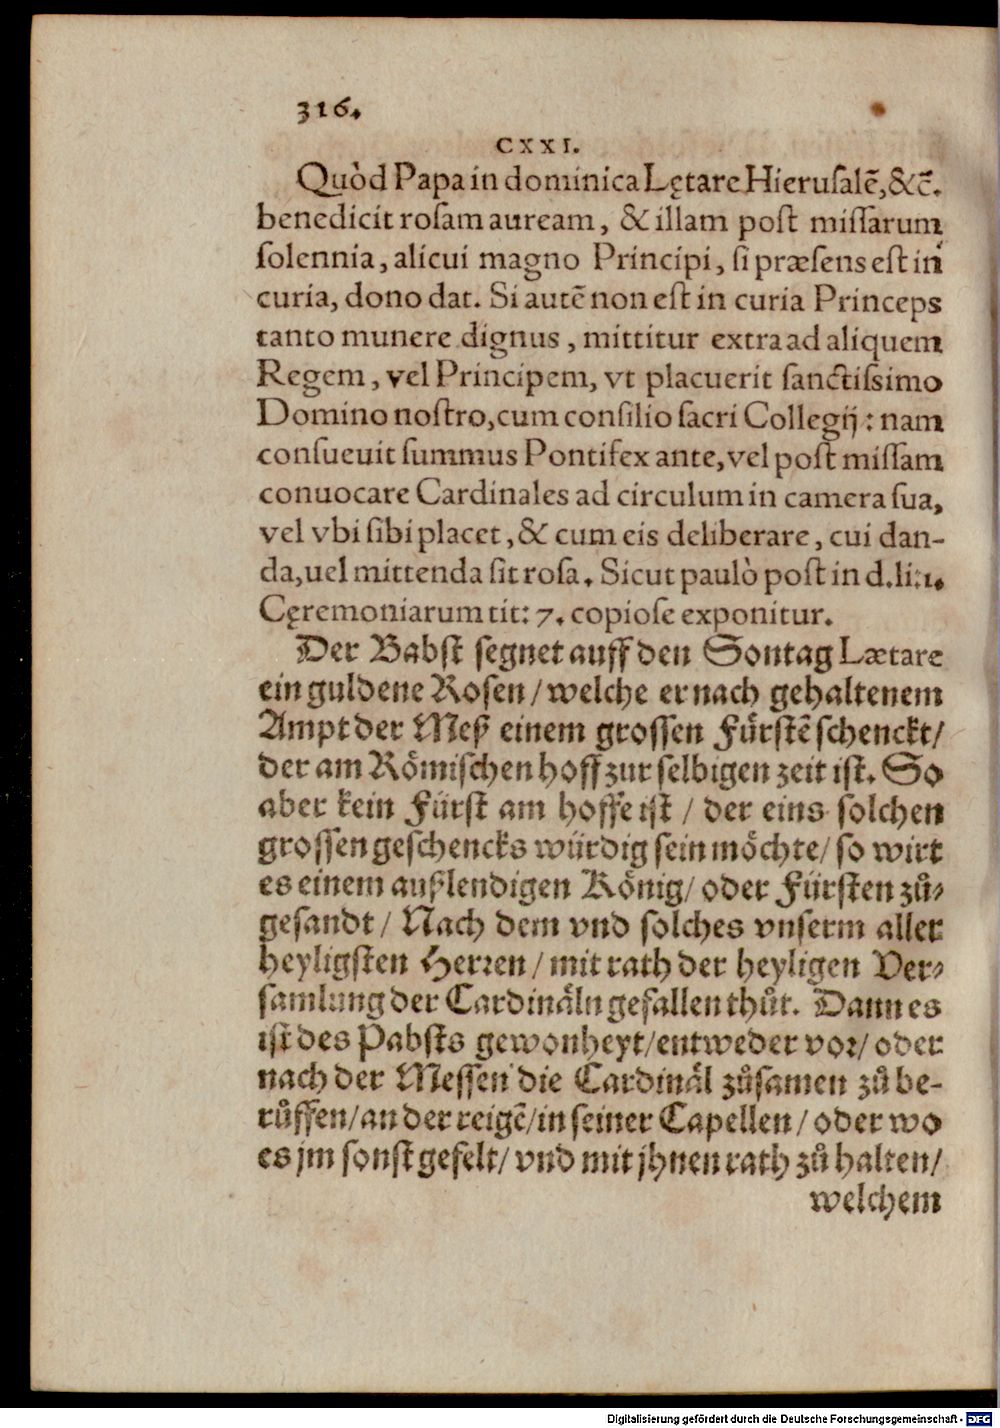 316.
CXXI.
Quòd Papa in dominica Lętare Hierusalē, &c̄.
benedicit rosam auream, & illam post missarum
solennia, alicui magno Principi, si præsens est in
curia, dono dat. Si autē non est in curia Princeps
tanto munere dignus, mittitur extra ad aliquem
Regem, vel Principem, vt placuerit sanctissimo
Domino nostro, cum consilio sacri Collegij: nam
consueuit summus Pontifex ante, vel post missam
conuocare Cardinales ad circulum in camera sua,
vel vbi sibi placet, & cum eis deliberare, cui dan-
da, uel mittenda sit rosa. Sicut paulò post in d. li: 1.
Cęremoniarum tit: 7. copiose exponitur.
Der Babst segnet auff den Sontag Lætare
ein guldene Rosen / welche er nach gehaltenem
Ampt der Meß einem grossen Fürstē schenckt /
der am Römischen hoff zur selbigen zeit ist. So
aber kein Fürst am hoffe ist / der eins solchen
grossen geschencks würdig sein möchte / so wirt
es einem außlendigen König / oder Fürsten zů-
gesandt / Nach dem vnd solches vnserm aller
heyligsten Herren / mit rath der heyligen Ver-
samlung der Cardinäln gefallen thůt. Dann es
ist des Pabsts gewonheyt / entweder vor / oder
nach der Messen die Cardinäl zůsamen zů be-
růffen / an der reigē / in seiner Capellen / oder wo
es jm sonst gefelt / vnd mit jhnen rath zů halten /
welchem
Digitalisierung gefördert durch die Deutsche Forschungsgemeinschaft - DFG